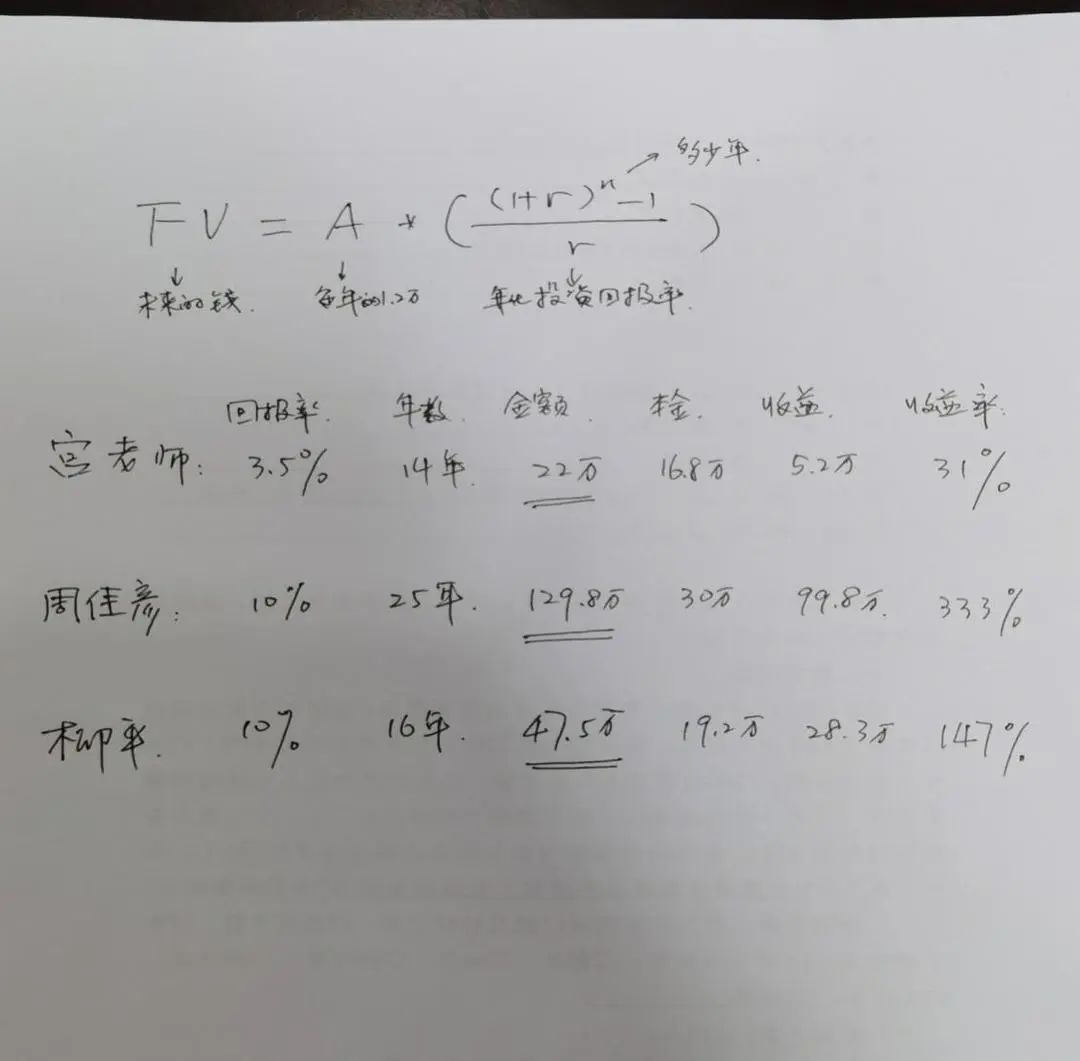 多少年.
FV = A * ( ((1+r)^n - 1) / r )
未来的钱. 每年的1.2万 年化投资回报率.
回报率. 年数. 金额. 本金. 收益. 收益率.
宫老师: 3.5% 14年. 22万 16.8万 5.2万 31%
周佳彦: 10% 25年. 129.8万 30万 99.8万. 333%
柳 10% 16年. 47.5万 19.2万 28.3万 147%.